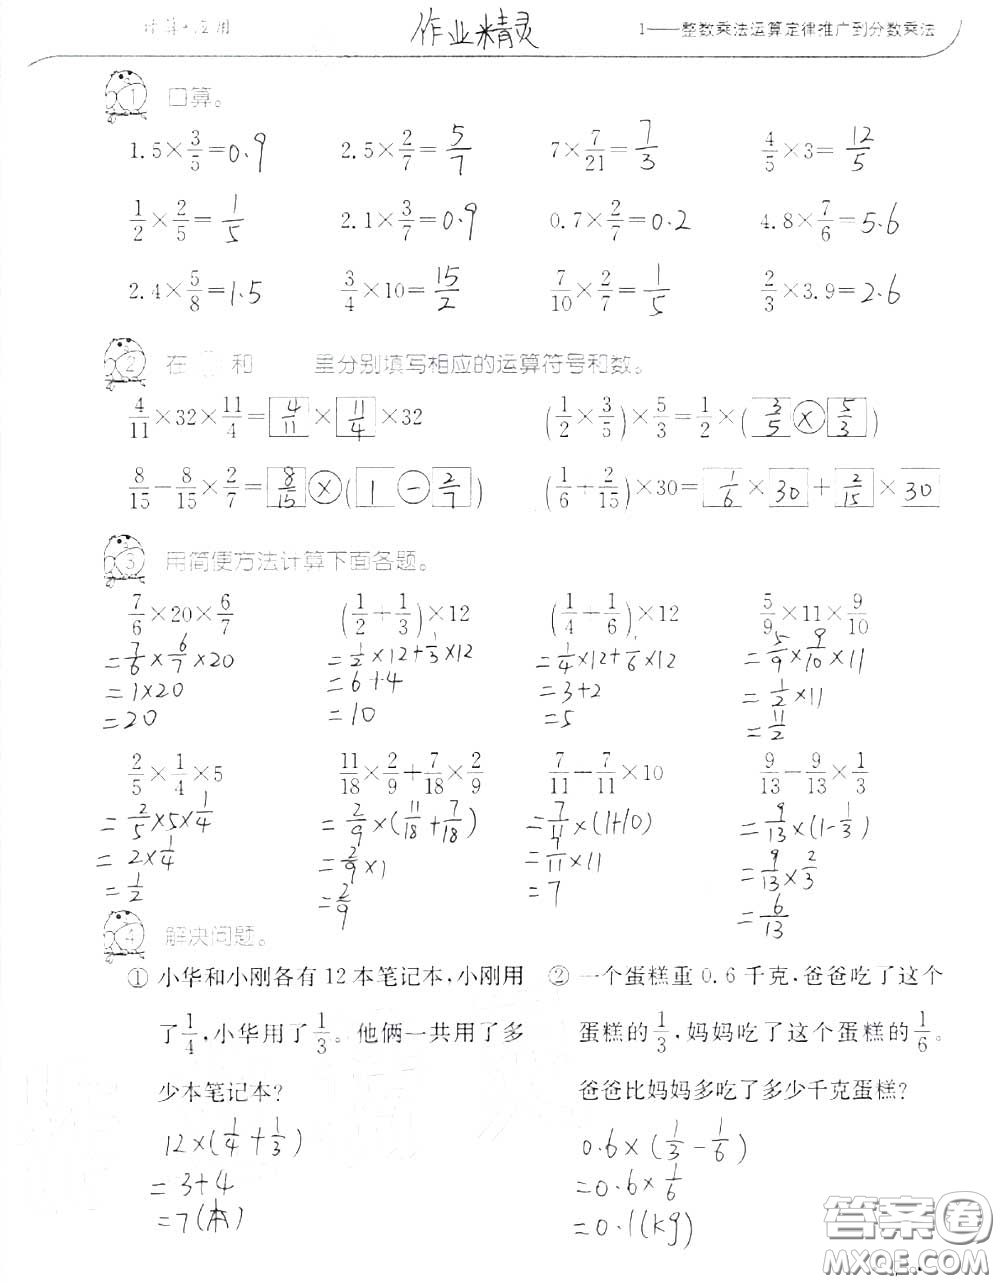 计算·应用 作业精灵 1——整数乘法运算定律推广到分数乘法
1 口算。
1.5×3/5=0.9 2.5×2/7=5/7 7×7/21=7/3 4/5×3=12/5
1/2×2/5=1/5 2.1×3/7=0.9 0.7×2/7=0.2 4.8×7/6=5.6
2.4×5/8=1.5 3/4×10=15/2 7/10×2/7=1/5 2/3×3.9=2.6
2 在 和 里分别填写相应的运算符号和数。
4/11×32×11/4=4/11×11/4×32 (1/2×3/5)×5/3=1/2×(3/5×5/3)
8/15−8/15×2/7=8/15×(1−2/7) (1/6+2/15)×30=1/6×30+2/15×30
3 用简便方法计算下面各题。
7/6×20×6/7 (1/2+1/3)×12 (1/4+1/6)×12 5/9×11×9/10
=7/6×6/7×20 =1/2×12+1/3×12 =1/4×12+1/6×12 =5/9×9/10×11
=1×20 =6+4 =3+2 =1/2×11
=20 =10 =5 =11/2
2/5×1/4×5 11/18×2/9+7/18×2/9 7/11−7/11×10 9/13−9/13×1/3
=2/5×5×1/4 =2/9×(11/18+7/18) =7/11×(1+10) =9/13×(1-1/3)
=2×1/4 =2/9×1 =7/11×11 =9/13×2/3
=1/2 =2/9 =7 =6/13
4 解决问题。
① 小华和小刚各有12本笔记本,小刚用
了1/4,小华用了1/3。他俩一共用了多
少本笔记本?
12×(1/4+1/3)
=3+4
=7(本)
② 一个蛋糕重0.6千克,爸爸吃了这个
蛋糕的1/3,妈妈吃了这个蛋糕的1/6。
爸爸比妈妈多吃了多少千克蛋糕?
0.6×(1/3-1/6)
=0.6×1/6
=0.1(kg)
答案圈
MXQE.COM